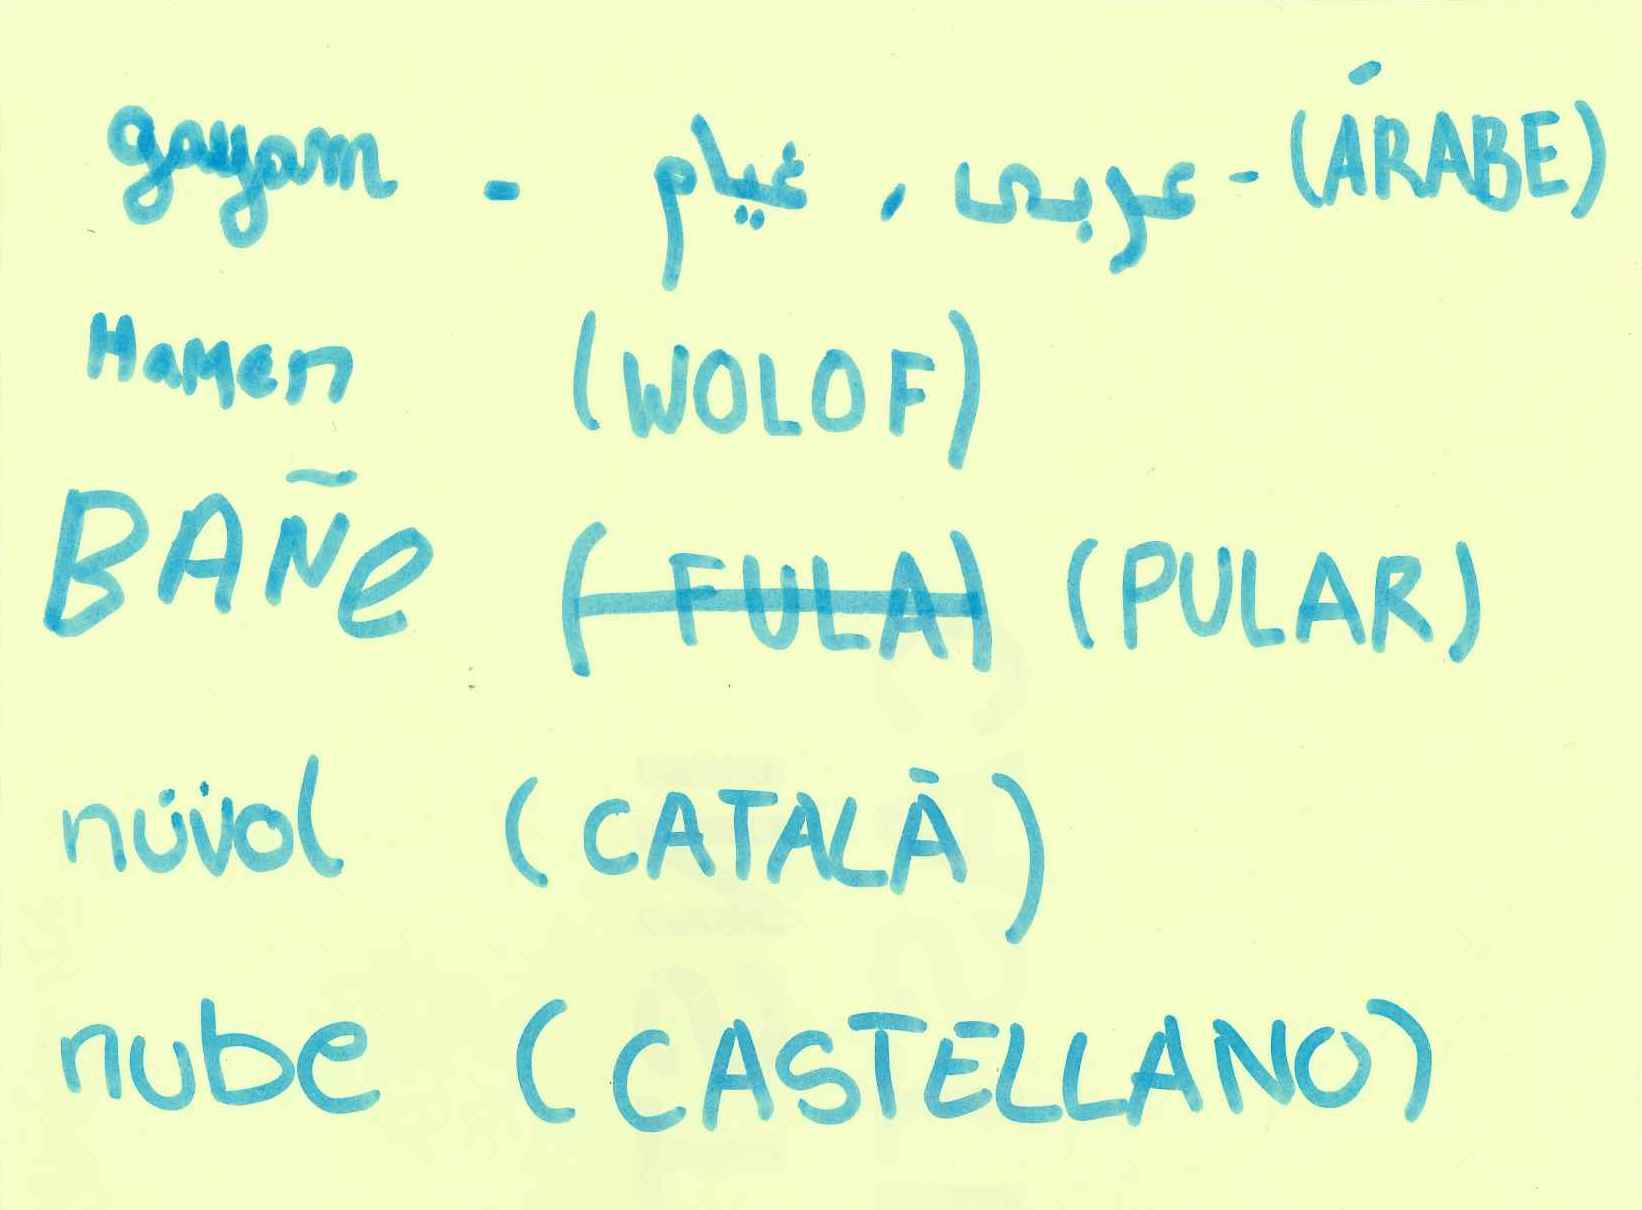 gayam - غيام , عربى - (ÁRABE)
Hamen (WOLOF)
BAÑe (FULA) (PULAR)
núvol (CATALÀ)
nube (CASTELLANO)